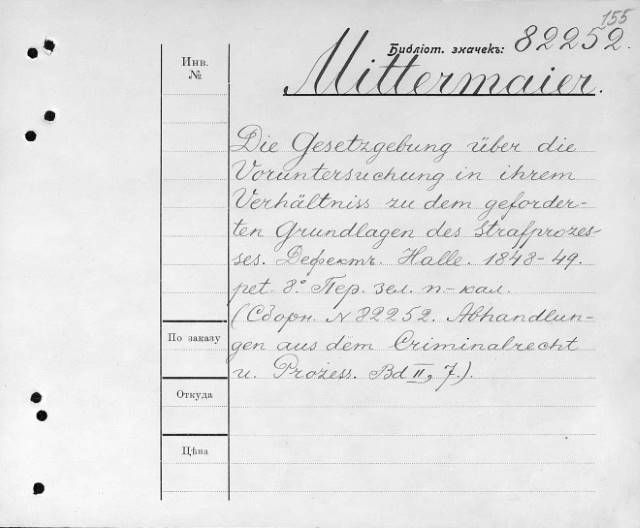 155
Библіот. значекъ: 82252.
Инв.
№
Mittermaier.
Die Gesetzgebung über die
Voruntersuchung in ihrem
Verhältniss zu dem geforder-
ten Grundlagen des Strafprozes-
ses. Дефектъ. Halle. 1848-49.
pet. 8.° Пер. зел. п-кал.
(Сборн. N 82252. Abhandlun-
По заказу
gen aus dem Criminalrecht
u. Prozess. Bd II, 7.).
Откуда
Цѣна